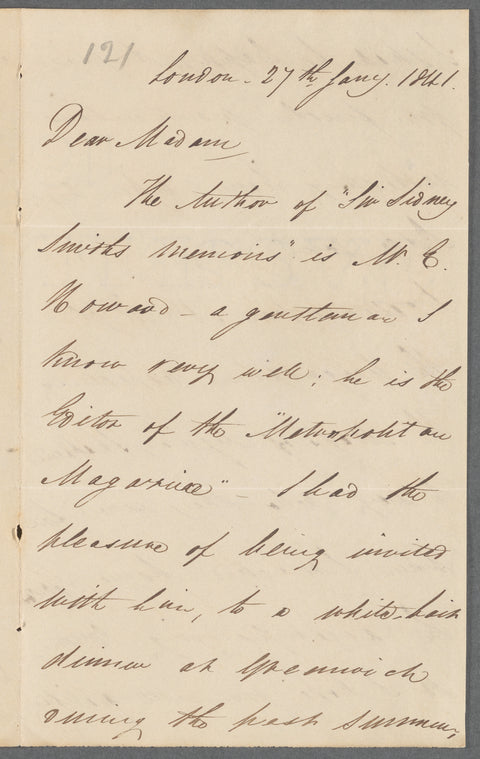 121
London - 27th Jany. 1841.
Dear Madam
The Author of "Sir Sidney
Smiths memoirs" is Mr. E.
Howard - a gentleman I
know very well; he is the
Editor of the "Metropolitan
Magazine" - I had the
pleasure of being invited
with him, to a white-bait
dinner at Greenwich
during the past summer,